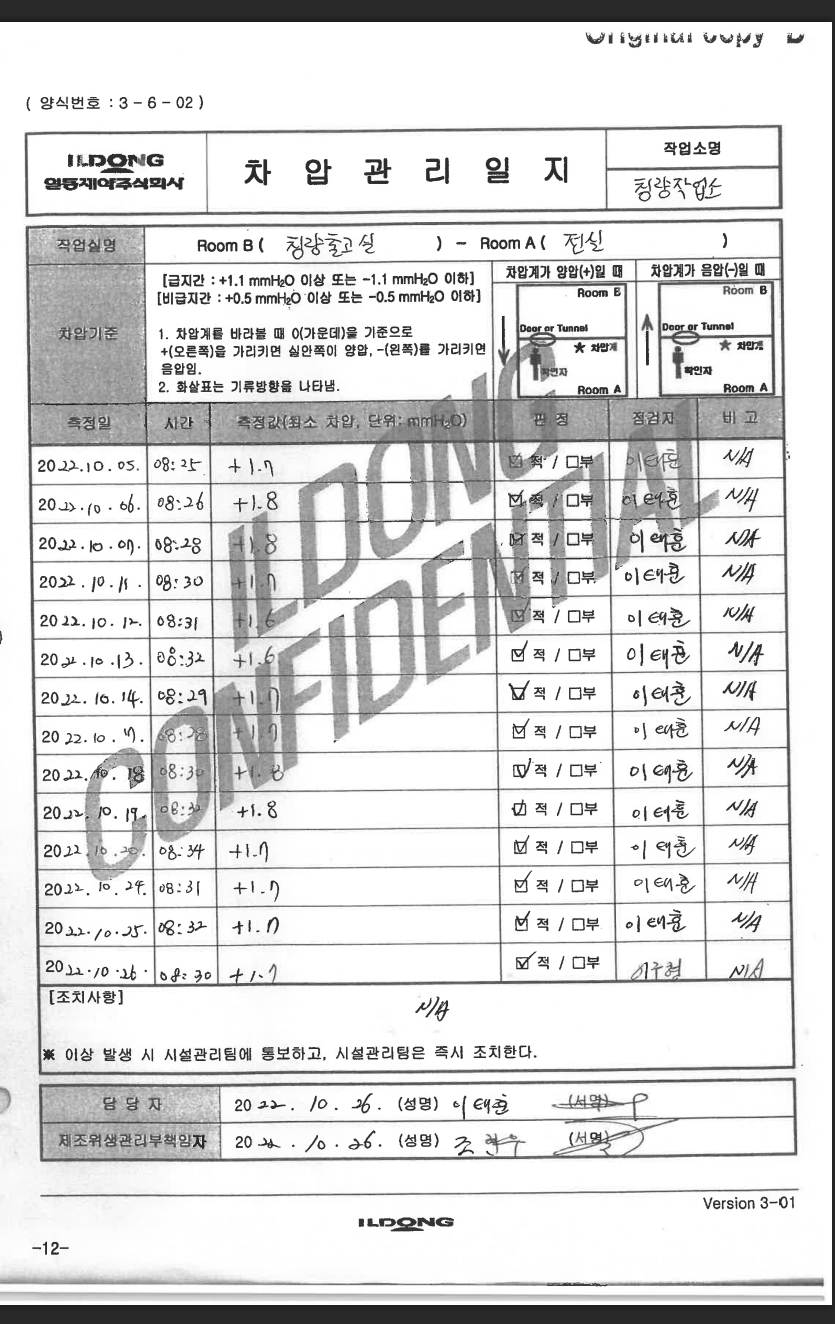 Original copy B
( 양식번호 : 3 - 6 - 02 )
ILDONG
일동제약주식회사
차 압 관 리 일 지
작업소명
칭량작업소
작업실명
Room B ( 칭량출고실 ) - Room A ( 전실 )
차압기준
[급지간 : +1.1 mmH₂O 이상 또는 -1.1 mmH₂O 이하]
[비급지간 : +0.5 mmH₂O 이상 또는 -0.5 mmH₂O 이하]
1. 차압계를 바라볼 때 0(가운데)을 기준으로
+(오른쪽)을 가리키면 실안쪽이 양압, -(왼쪽)를 가리키면
음압임.
2. 화살표는 기류방향을 나타냄.
차압계가 양압(+)일 때
Room B
Door or Tunnel
★ 차압계
확인자
Room A
차압계가 음압(-)일 때
Room B
Door or Tunnel
★ 차압계
확인자
Room A
측정일 시간 측정값(최소 차압, 단위: mmH₂O) 판 정 점검자 비 고
2022.10.05. 08:25 +1.7 ☑ 적 / □부 이태훈 N/A
2022.10.06. 08:26 +1.8 ☑ 적 / □부 이태훈 N/A
2022.10.07. 08:28 +1.8 ☑ 적 / □부 이태훈 N/A
2022.10.11. 08:30 +1.7 ☑ 적 / □부 이태훈 N/A
2022.10.12. 08:31 +1.6 ☑ 적 / □부 이태훈 N/A
2022.10.13. 08:32 +1.6 ☑ 적 / □부 이태훈 N/A
2022.10.14. 08:29 +1.7 ☑ 적 / □부 이태훈 N/A
2022.10.17. 08:28 +1.7 ☑ 적 / □부 이태훈 N/A
2022.10.18 08:30 +1.8 ☑ 적 / □부 이태훈 N/A
2022.10.19. 08:32 +1.8 ☑ 적 / □부 이태훈 N/A
2022.10.20. 08:34 +1.7 ☑ 적 / □부 이태훈 N/A
2022.10.24. 08:31 +1.7 ☑ 적 / □부 이태훈 N/A
2022.10.25. 08:32 +1.7 ☑ 적 / □부 이태훈 N/A
2022.10.26. 08:30 +1.7 ☑ 적 / □부 N/A
ILDONG
CONFIDENTIAL
[조치사항]
N/A
※ 이상 발생 시 시설관리팀에 통보하고, 시설관리팀은 즉시 조치한다.
담 당 자 2022. 10. 26. (성명) 이태훈 (서명)
제조위생관리부책임자 2022. 10. 26. (성명) (서명)
Version 3-01
ILDONG
-12-